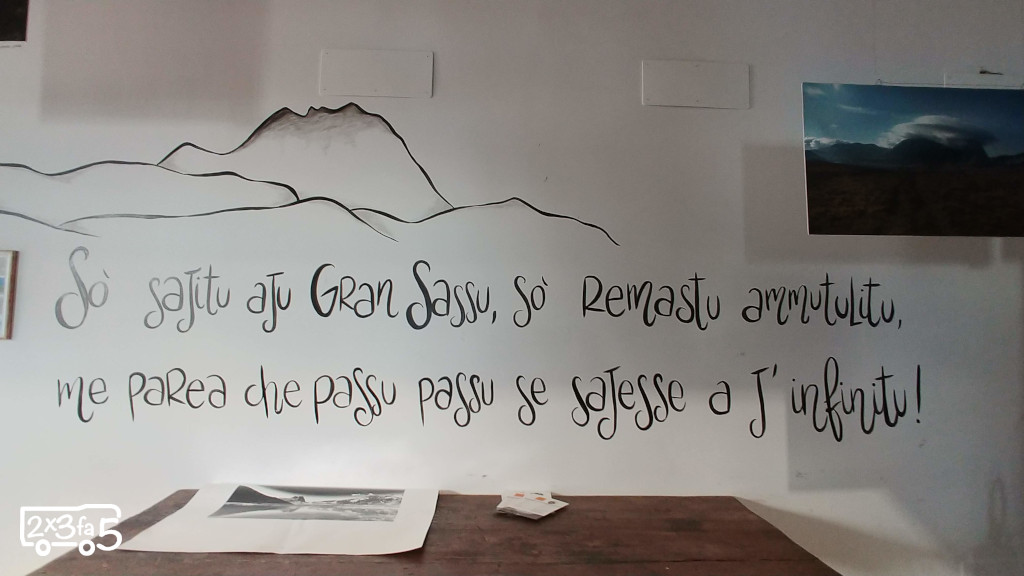 Sò sajitu aju Gran Sassu, sò remastu ammutulitu,
me parea che passu passu se sajesse a j' infinitu!
2x3fa5